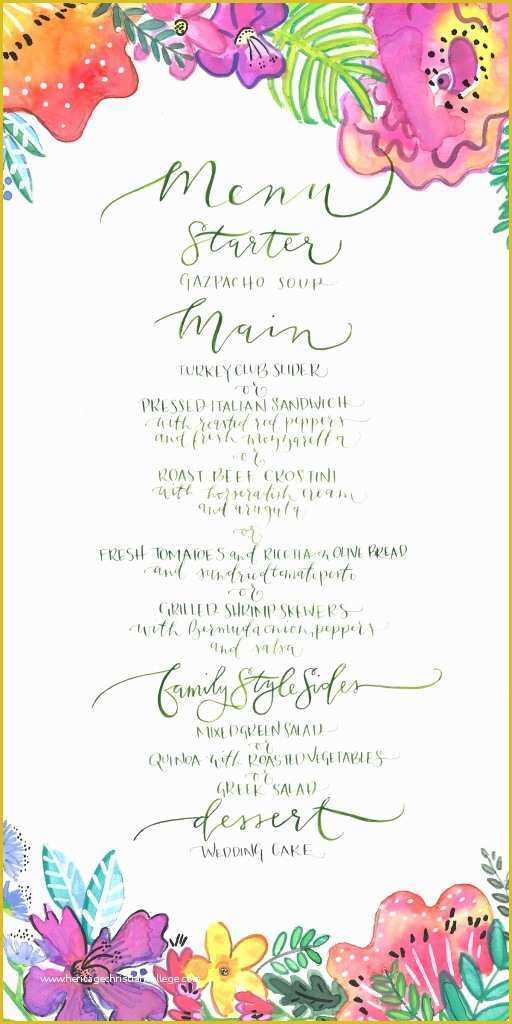 Menu
Starter
GAZPACHO SOUP
Main
TURKEY CLUB SLIDER
or
PRESSED ITALIAN SANDWICH
with roasted red peppers
and fresh mozzarella
or
ROAST BEEF CROSTINI
with horseradish cream
and arugula
or
FRESH TOMATOES and RICOTTA on OLIVE BREAD
and sundried tomato pesto
or
GRILLED SHRIMP SKEWERS
with Bermuda onion, peppers
and salsa
Family Style Sides
MIXED GREEN SALAD
or
QUINOA with ROASTED VEGETABLES
or
GREEK SALAD
dessert
WEDDING CAKE
www.heritagechristiancollege.com